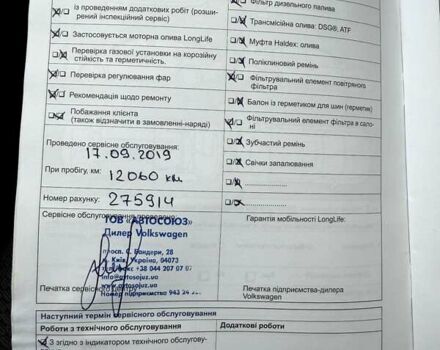 із проведенням додаткових робіт (розши-
рений інспекційний сервіс)
Застосовується моторна олива LongLife
Перевірка газової установки на корозійну
стійкість та герметичність.
Перевірка регулювання фар
Рекомендація щодо ремонту
Побажання клієнта
(також відзначити в замовленні-наряді)
Фільтр дизельного палива
Трансмісійна олива: DSG®, ATF
Муфта Haldex: олива
Полікліновий ремінь
Фільтрувальний елемент повітряного
фільтра
Балон із герметиком для шин (герметик)
Фільтрувальний елемент фільтра в сало-
ні
Зубчастий ремінь
Свічки запалювання
Проведено сервісне обслуговування:
17.09.2019
При пробігу, км: 12060 км
Номер рахунку: 275914
Сервісне обслуговування проведено:
ТОВ «АВТОСОЮЗ»
Дилер Volkswagen
просп. С. Бандери, 28
м. Київ, Україна, 04073
тел/факс +38 044 207 07 07
info@avtosojuz.ua
www.avtosojuz.ua
Номер підприємства 943 24
Печатка сервісного центру
Гарантія мобільності LongLife:
Печатка підприємства-дилера
Volkswagen
Наступний термін сервісного обслуговування
Роботи з технічного обслуговування
Додаткові роботи
З згідно з індикатором технічного обслугову-